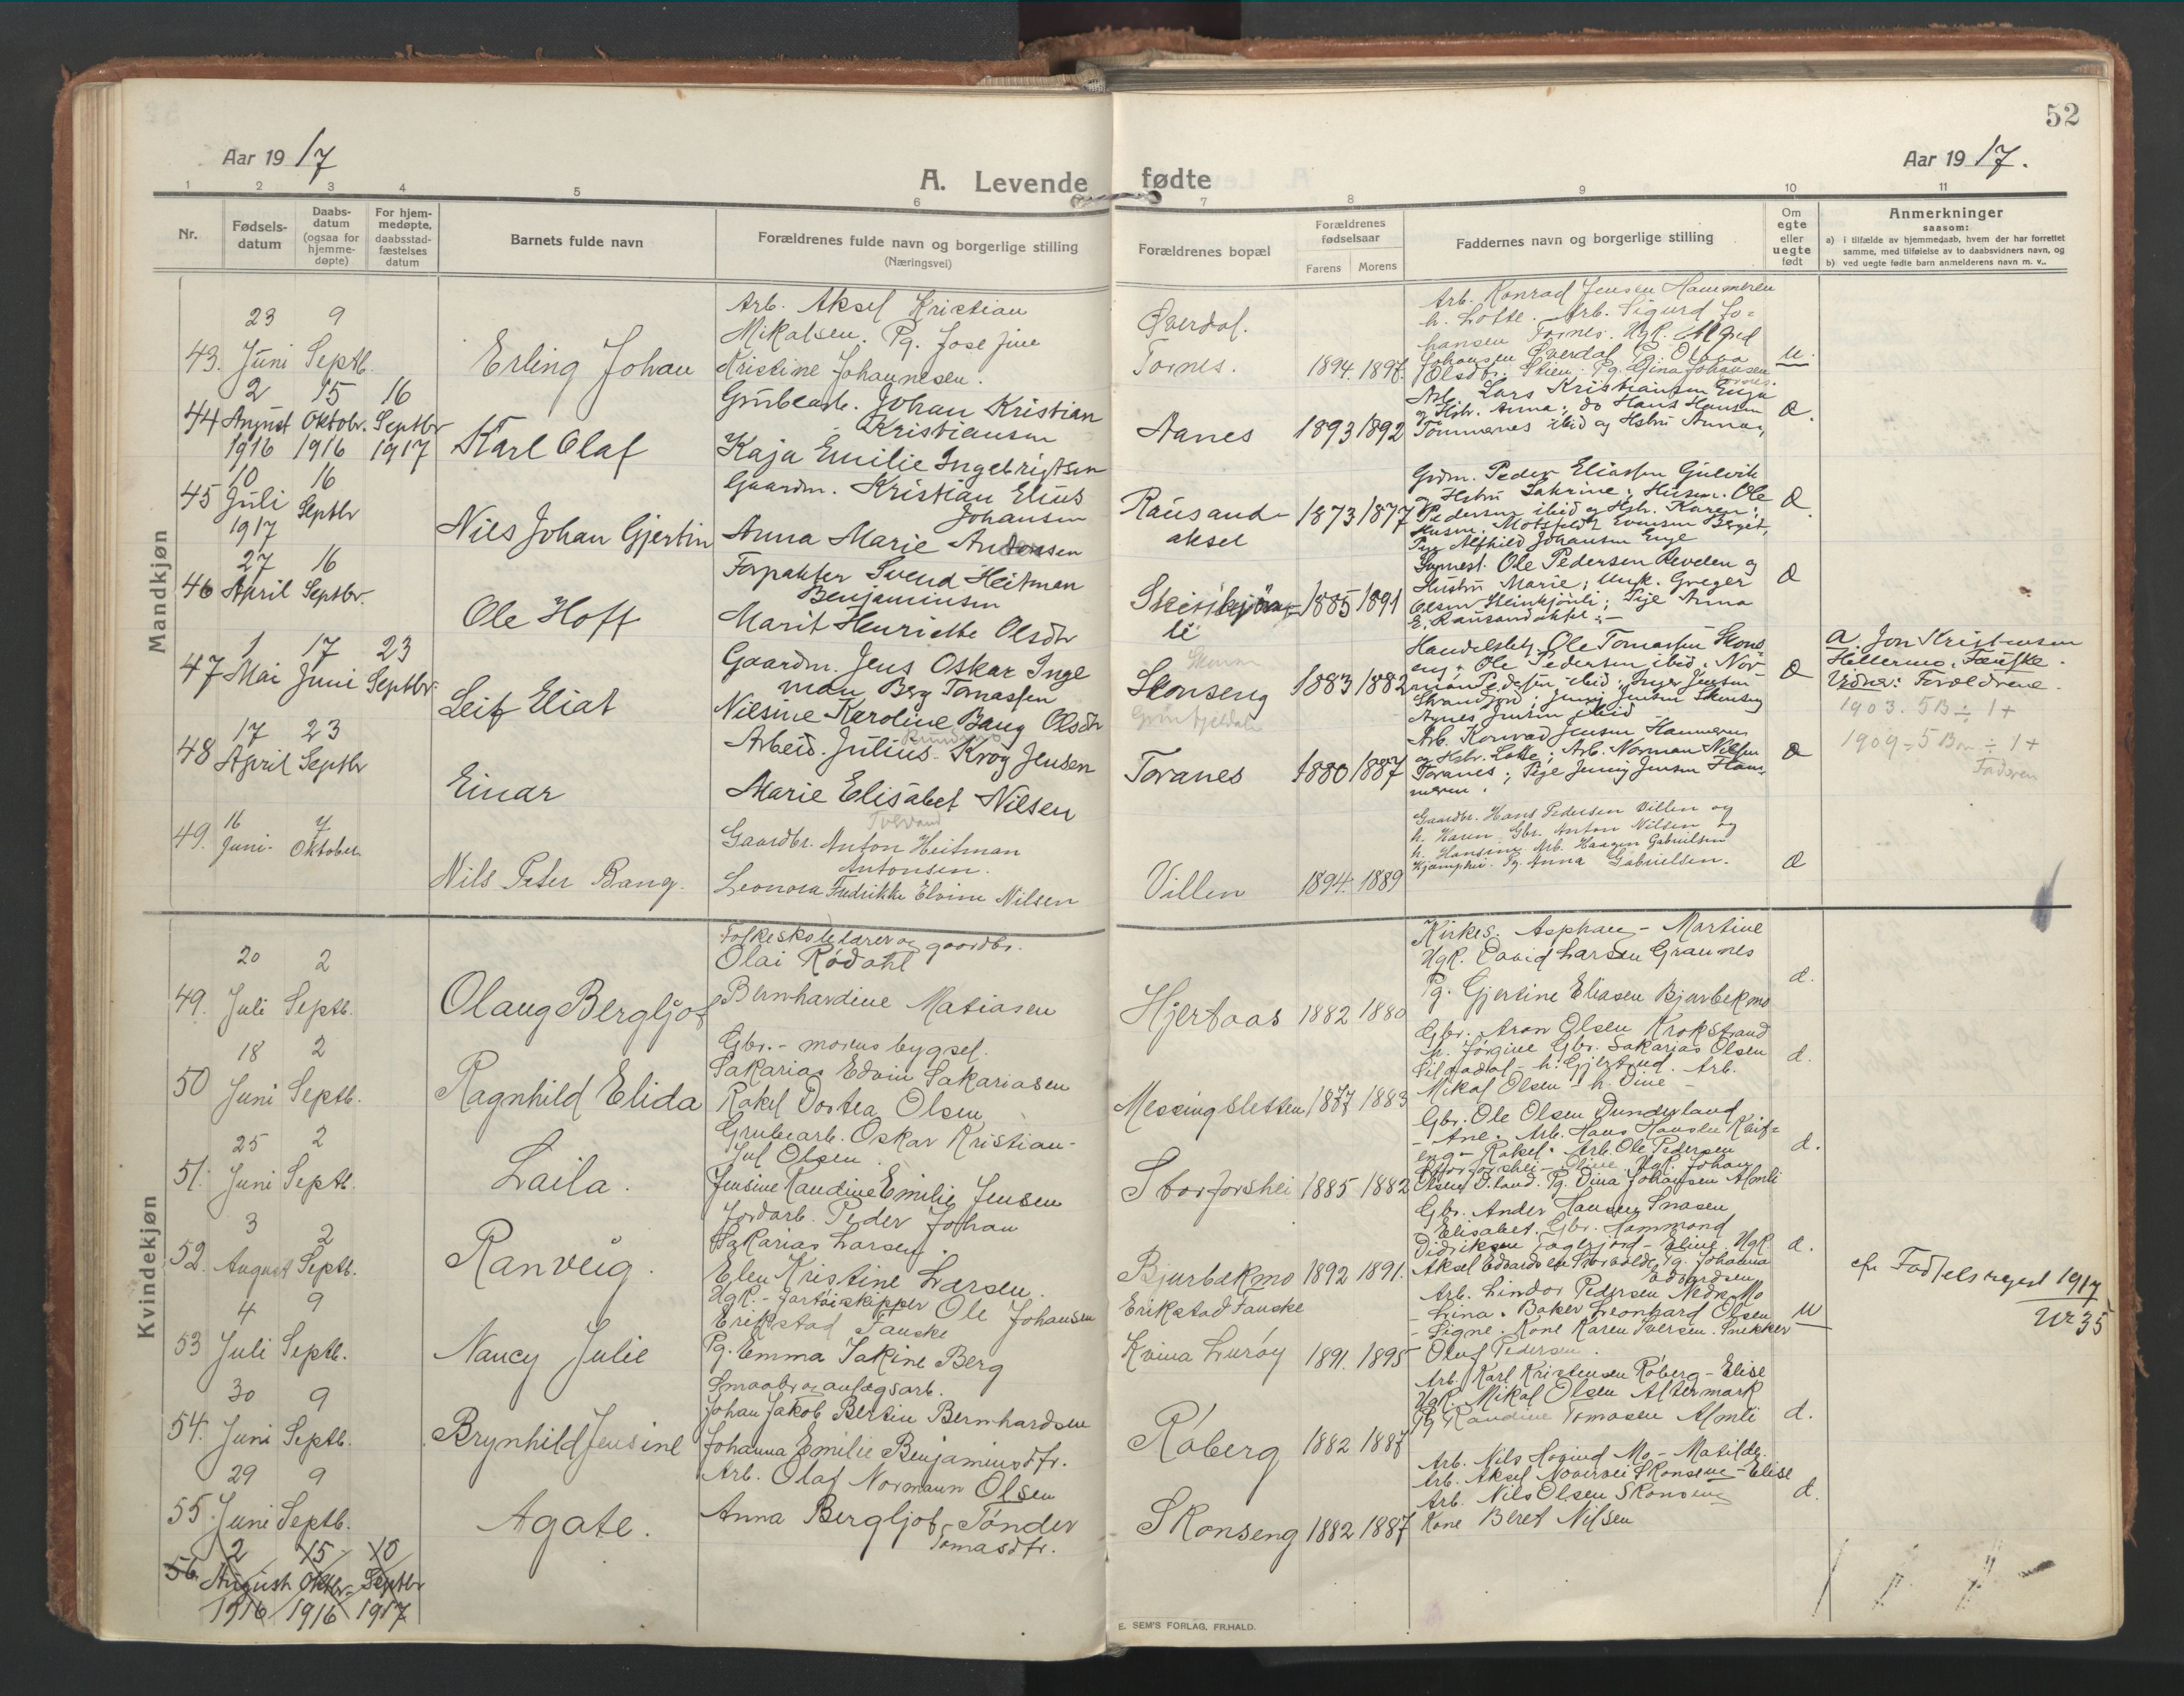 52
Aar 1917
Aar 1917.
A. Levende fødte
1 2 3 4 5 6 7 8 9 10 11
Nr.
Fødsels-
datum
Daabs-
datum
(ogsaa for
hjemme-
døpte)
For hjem-
medøpte,
daabsstad-
fæstelses
datum
Barnets fulde navn
Forældrenes fulde navn og borgerlige stilling
(Næringsvei)
Forældrenes bopæl
Forældrenes
fødselsaar
Farens Morens
Faddernes navn og borgerlige stilling
Om
egte
eller
uegte
født
Anmerkninger
saasom:
a) i tilfælde av hjemmedaab, hvem der har forrettet
samme, med tilføielse av to daabsvidners navn, og
b) ved uegte fødte barn anmelderens navn m. v..
Mandkjøn
43. 23 Juni 9 Septb.
Erling Johan
Arb. Aksel Kristian
Mikalsen. Pg. Josefine
Kristine Johannesen.
Øverdal.
Tornes.
1894. 1897.
Arb. Konrad Jensen Hammeren
h. Lotte. Arb. Sigurd Jo-
hansen Tornes. Ugk. Alfred
Johansen Øverdal Pg. Olava
Olsdtr. Stien. Pg. Gina Johansen
Tornes.
u.
44 2 August 1916 15 Oktobr. 1916 16 Septbr 1917
Karl Olaf
Grubearb. Johan Kristian
Kristiansen
Kaja Emilie Ingebrigtsen
Aanes
1893 1892
Arb. Lars Kristiansen Enga
og Hstr. Anna; do Hans Hansen
Tømmernes ibid og Hstru Anna,
Æ.
45 10 Juli 1917 16 Septbr
Nils Johan Gjertin
Gaardm. Kristian Elius
Johansen
Anna Marie Andersen
Rausand-
aksel
1873 1877
Grdm. Peder Eliassen Gulvik
og Hstru Sakrine; Husm. Ole
Pedersen ibid og Hstr. Karen;
Husm. Motsfeldt Evensen Berget,
Pige Alfhild Johansen Enge
Æ.
46 27 April 16 Septbr.
Ole Hoff
Forpakter Svend Heitman
Benjaminsen
Marit Henriette Olsdtr
li
1885 1891
Ole Pedersen Revelen og
Hustru Marie; Unk. Greger
Olsen Steinkjønli; Pije Anna
E. Rausandaksel.-
Æ
47 1 Mai 17 Juni 23 Septbr.
Leif Eliat
Gaardm. Jens Oskar Inge
man Berg Tomassen
Nilsine Karoline Bang Olsdtr
Skonseng
Grønfjeldal
1883 1882
Handelsbetj. Ole Tomassen Skons
eng; Ole Pedersen ibid; Nor-
man Pedersen ibid; Inger Jensen
Strandjord; Jenny Jensen Skonseng
Agnes Jensen ibid
Æ
a. Jon Kristensen
Hellermo, Fauske.
Vidner: Forældrene.
1903. 5 B ÷ 1+
48 17 April 23 Septbr
Einar
Arbeid. Julius Krog Jensen
Marie Elisabet Nilsen
Toranes
1880 1887
Arb. Konrad Jensen Hammeren
og Hstr. Lotte; Arb. Norman Nilsen
Toranes; Pije Jenny Jensen Ham-
meren.
Æ
1909 ÷ 5 Bar ÷ 1+
Faderen
49. 16 Juni. 7 Oktober.
Nils Peter Bang.
Gaardbr. Anton Heitman
Antonsen.
Leonora Fredrikke Elvine Nilsen
Villen
1894. 1889
Gaardbr. Hans Pedersen Villen og
h. Karen. Gbr. Anton Nilsen og
h. Hansine. Arb. Haagen Gabrielsen
Kjamphei. Pg. Anna Gabrielsen.
Æ
Kvindekjøn
49. 20 Juli 2 Septb.
Olaug Bergljot
Folkeskolelærer og gaardbr.
Olai Rødahl
Bernhardine Matiasen
Hjertaas
1882 1880
Kirkes. Asphaug - Martine
Ugk. David Larsen Grannes
Pg. Gjertine Eliasen Bjurbekmo
Æ.
50 18 Juni 2 Septb.
Ragnhild Elida
Gbr. - morens bygsel.
Sakarias Edvin Sakariasen
Rakel Dortea Olsen
Messingsletten
1877 1883
Gbr. Aron Olsen Krokstrand
h. Jørgine Gbr. Sakarias Olsen
h. Gjertrud. Arb.
Mikal Olsen - h. Dine -
Æ.
51. 25 Juni 2 Septb.
Laila.
Grubearb. Oskar Kristian
Jul Olsen.
Jensine Kaudine Emilie Jensen
Storforshei
1885 1882
Gbr. Ole Olsen Dunderland
- Ane. Arb. Hans Hansen
eng - Rakel. Arb. Ole Pedersen
Storforshei - Oline. Ugk. Johan
Olsen D.land. Pg. Dina Johansen Almli
Æ.
52. 3 August 2 Septb.
Ranveig.
Jordarb. Peder Johan
Sakarias Larsen.
Elen Kristine Larsen.
Bjurbækmo
1892 1891.
Gbr. Ander Hansen Snasen
- Elisabet. Gbr. Hammond
Didriksen Fagerjord - Eline. Ugk
Aksel Edvardsen Storvolden. Pg. Johanna
Edvardsen
Æ.
53 4 Juli 9 Septb.
Nancy Julie
Ugk. - fartøiskipper Ole Johansen
Erikstad Fauske
Pg. Emma Jakine Berg
Erikstad Fauske
Kvina Lurøy
1891. 1895
Arb. Lindor Pedersen Nedre Mo
- Lina. Baker Leonhard Olsen
- Signe. Kone Karen Iversen. Snekker
Oluf Pedersen.
u
cfr Fødselsregist 1917
Nr 35
54. 30 Juni 9 Septb.
Brynhild Jensine
Smaabr. og anlægsarb.
Johan Jakob Bertin Bernhardsen
Johanna Emilie Benjaminsdtr.
Røberg
1882 1887
Arb. Karl Kristensen Røberg - Elise
Ugk. Mikal Olsen Altermark
Pg Kaudine Tomasen Almli
Æ.
55. 29 Juni 9 Septb.
Agate.
Arb. Olaf Normann Olsen
Anna Bergljot Tønder
Tomasdtr.
Skonseng
1882 1887
Arb. Nils Høgind Mo - Matilde.
Arb. Aksel Nævervei Skonseng - Elise
Arb. Nils Olsen Skonseng
Kone Beret Nilsen
Æ.
56. 2 August 1916 15 Oktbr. 1916 10 Septbr 1917
E. SEM'S FORLAG, FR.HALD.